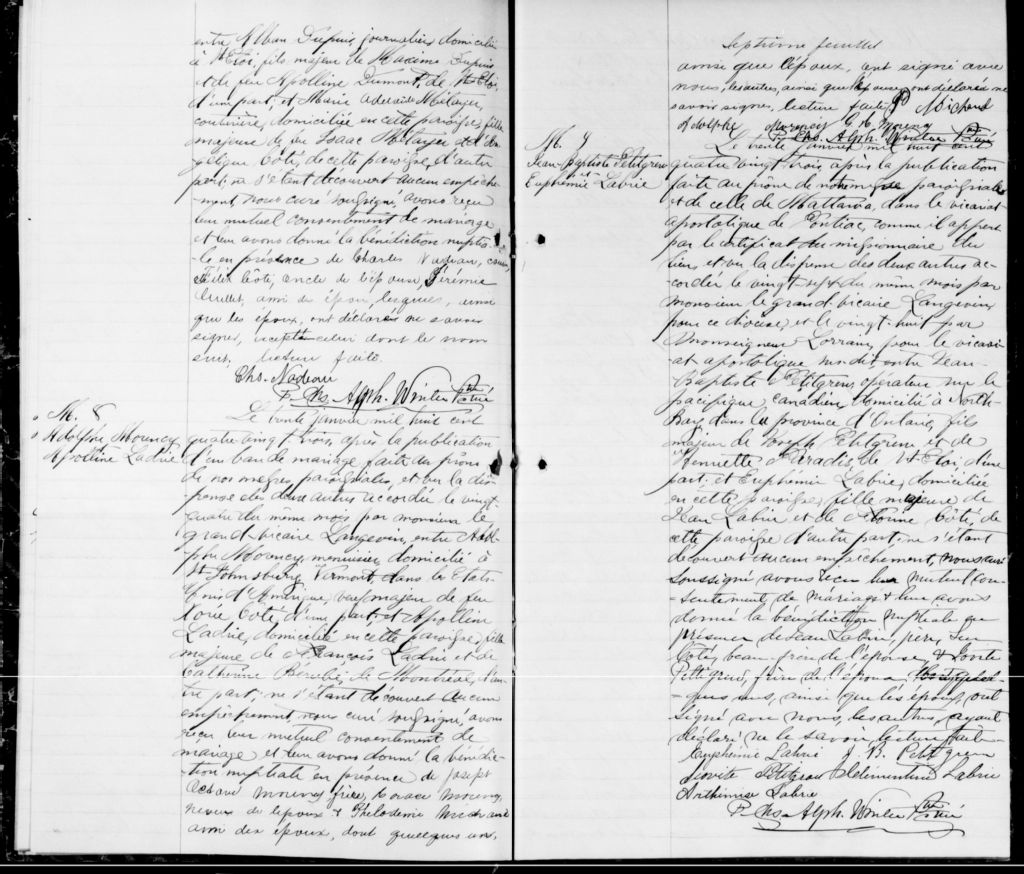 entre Alban Dupuis, journalier, domicilié
à St Eloi, fils majeur de Maxime Dupuis
et de feu Apolline Dumont, de St Eloi,
d'une part; et Marie Adelaide Métayer,
couturière, domiciliée en cette paroisse, fille
majeure de feu Isaac Métayer et d'An-
gélique Coté, de cette paroisse, d'autre
part; ne s'étant découvert aucun empêche-
ment, nous curé soussigné, avons reçu
leur mutuel consentement de mariage
et leur avons donné la bénédiction nuptia-
le en présence de Charles Nadeau, cousin,
Coté, oncle de l'épouse, Jérémie
Ouellet, ami des époux, lesquels, ainsi
que les époux, ont déclarés ne savoir
signer, excepté celui dont le nom
suit, lecture faite.
Chs. Nadeau
P. Chs. Alph. Winter Ptre Curé
M. 8
Adolphe Mouncy
Apolline Ladrie
Le trente janvier mil huit cent
quatre vingt trois, après la publication
d'un ban de mariage faite au prône
de nos messes paroissiales, et vu la dis-
pense des deux autres accordée le vingt
quatre du même mois, par monsieur le
grand-vicaire Langevin, entre Adol-
phe Mouncy, menuisier, domicilié à
St Johnsbury, Vermont, dans les Etats-
Unis d'Amérique, veuf majeur de feu
Coté, d'une part; et Apolline
Ladrie, domiciliée en cette paroisse, fille
majeure de François Ladrie et de
Catherine Bérubé, de Montréal, d'au-
tre part; ne s'étant découvert aucun
empêchement, nous curé soussigné, avons
reçu leur mutuel consentement de
mariage et leur avons donné la bénédic-
tion nuptiale en présence de Joseph
Octave Mouncy, frère, Horace Mouncy,
neveu de l'époux & Philodème Michaud
ami des époux, dont quelques uns,
Septième feuillet
ainsi que l'époux, ont signé avec
nous, les autres, ainsi que l'épouse, ont déclarés ne
savoir signer, lecture faite. P. Michaud
Adolphe Mouncy
P. Chs. Alph. Winter Ptre Curé
M. 9
Jean-Baptiste Petitgrew
et
Euphémie Labrie
Le trente janvier mil huit cent
quatre vingt trois, après la publication
faite au prône de notre messe paroissiale
et de celle de Mattawa, dans le vicariat
apostolique de Pontiac, comme il appert
par le certificat du missionnaire du
lieu, et vu la dispense des deux autres ac-
cordée le vingt sept du même mois par
monsieur le grand-vicaire Langevin
pour ce diocèse, et le vingt-huit par
Monseigneur Lorrain, pour le vicari-
at apostolique susdit, entre Jean-
Baptiste Petitgrew, opérateur sur le
pacifique canadien, domicilié à North-
Bay, dans la province d'Ontario, fils
majeur de Joseph Petitgrew et de
Henriette Paradis, de St Eloi, d'une
part; et Euphémie Labrie, domiciliée
en cette paroisse, fille majeure de
Jean Labrie et de Coté, de
cette paroisse d'autre part; ne s'étant
découvert aucun empêchement, nous curé
soussigné avons reçu leur mutuel con-
sentement de mariage & leur avons
donné la bénédiction nuptiale en
présence de Jean Labrie, père,
Coté, beau-frère de l'épouse, & Jovite
Petitgrew, frère de l'époux. Quel-
ques uns, ainsi que les époux, ont
signé avec nous, les autres, ayant
déclaré ne le savoir, lecture faite.
Euphémie Labrie J. B. Petitgrew
Jovite Petitgrew Clémentine Labrie
Arthémise Labrie
P. Chs. Alph. Winter Ptre Curé